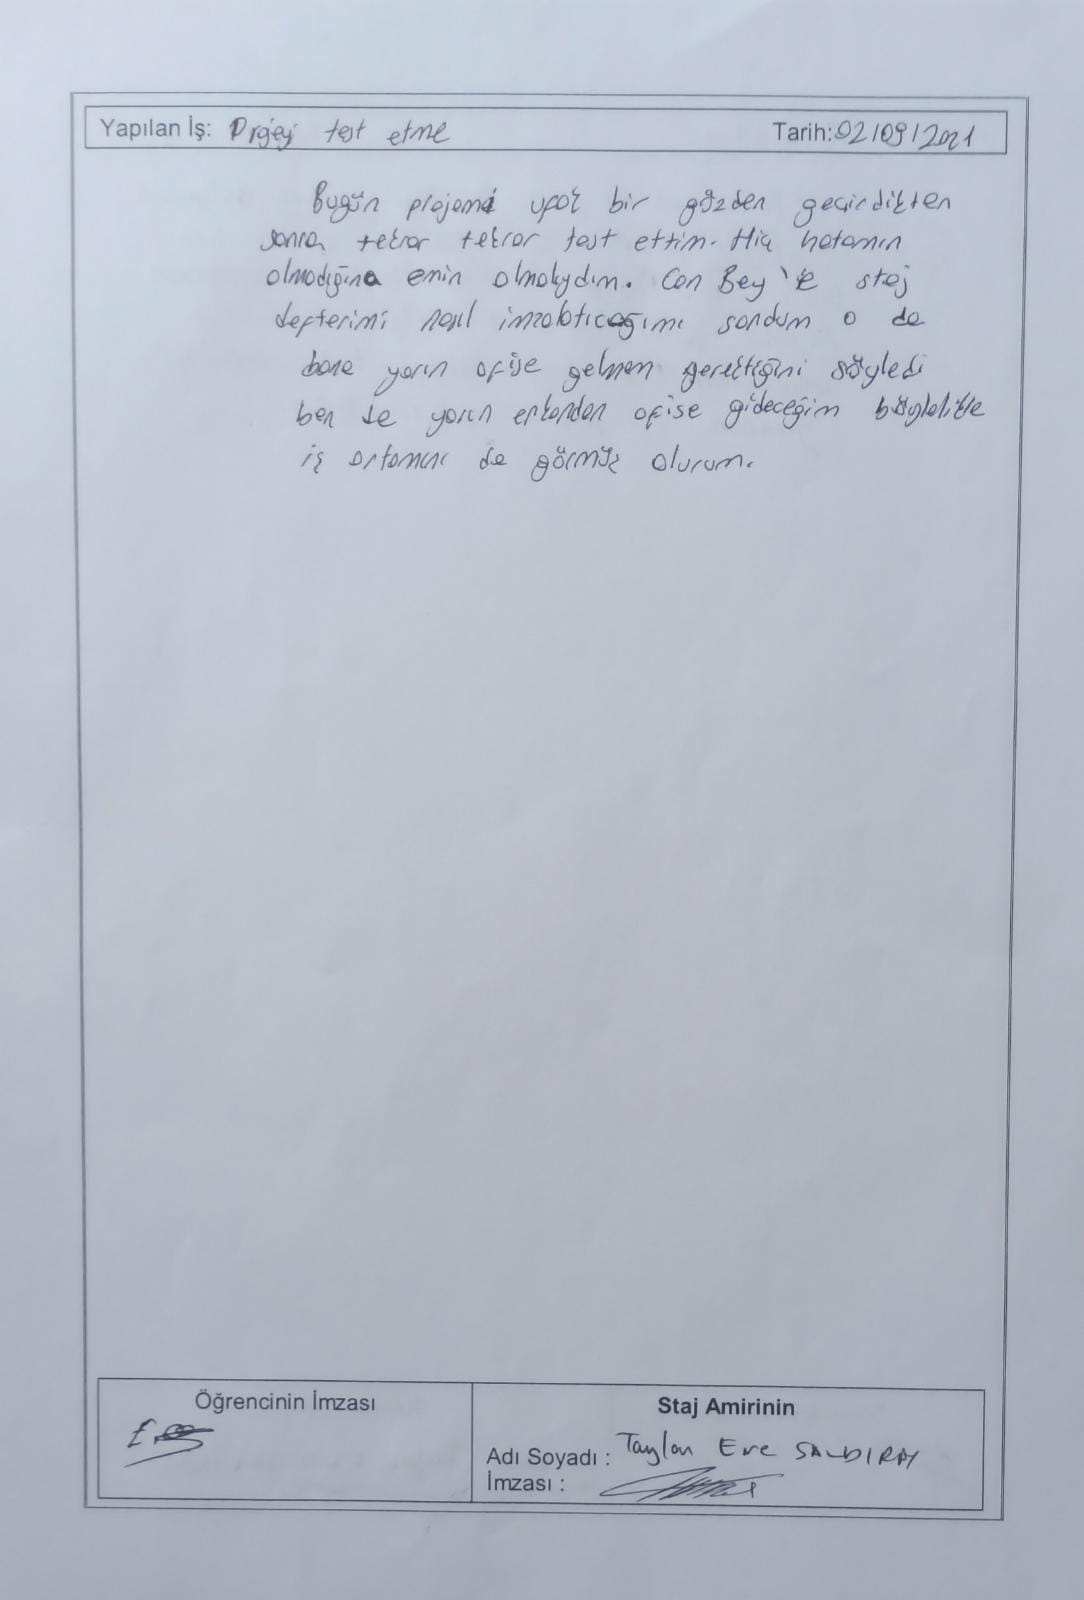 Yapılan İş: Projeyi test etme Tarih:02/09/2021
Bugün projemi ufak bir gözden geçirdikten
sonra tekrar tekrar test ettim. Hiç hatamın
olmadığına emin olmalıydım. Can Bey'e staj
defterimi nasıl imzalatıcağımı sordum o da
bana yarın ofise gelmen gerektiğini söyledi
ben de yarın erkenden ofise gideceğim böylelikle
iş ortamını da görmüş olurum.
Öğrencinin İmzası
Staj Amirinin
Adı Soyadı : Taylan Eve SALDIRAY
İmzası :